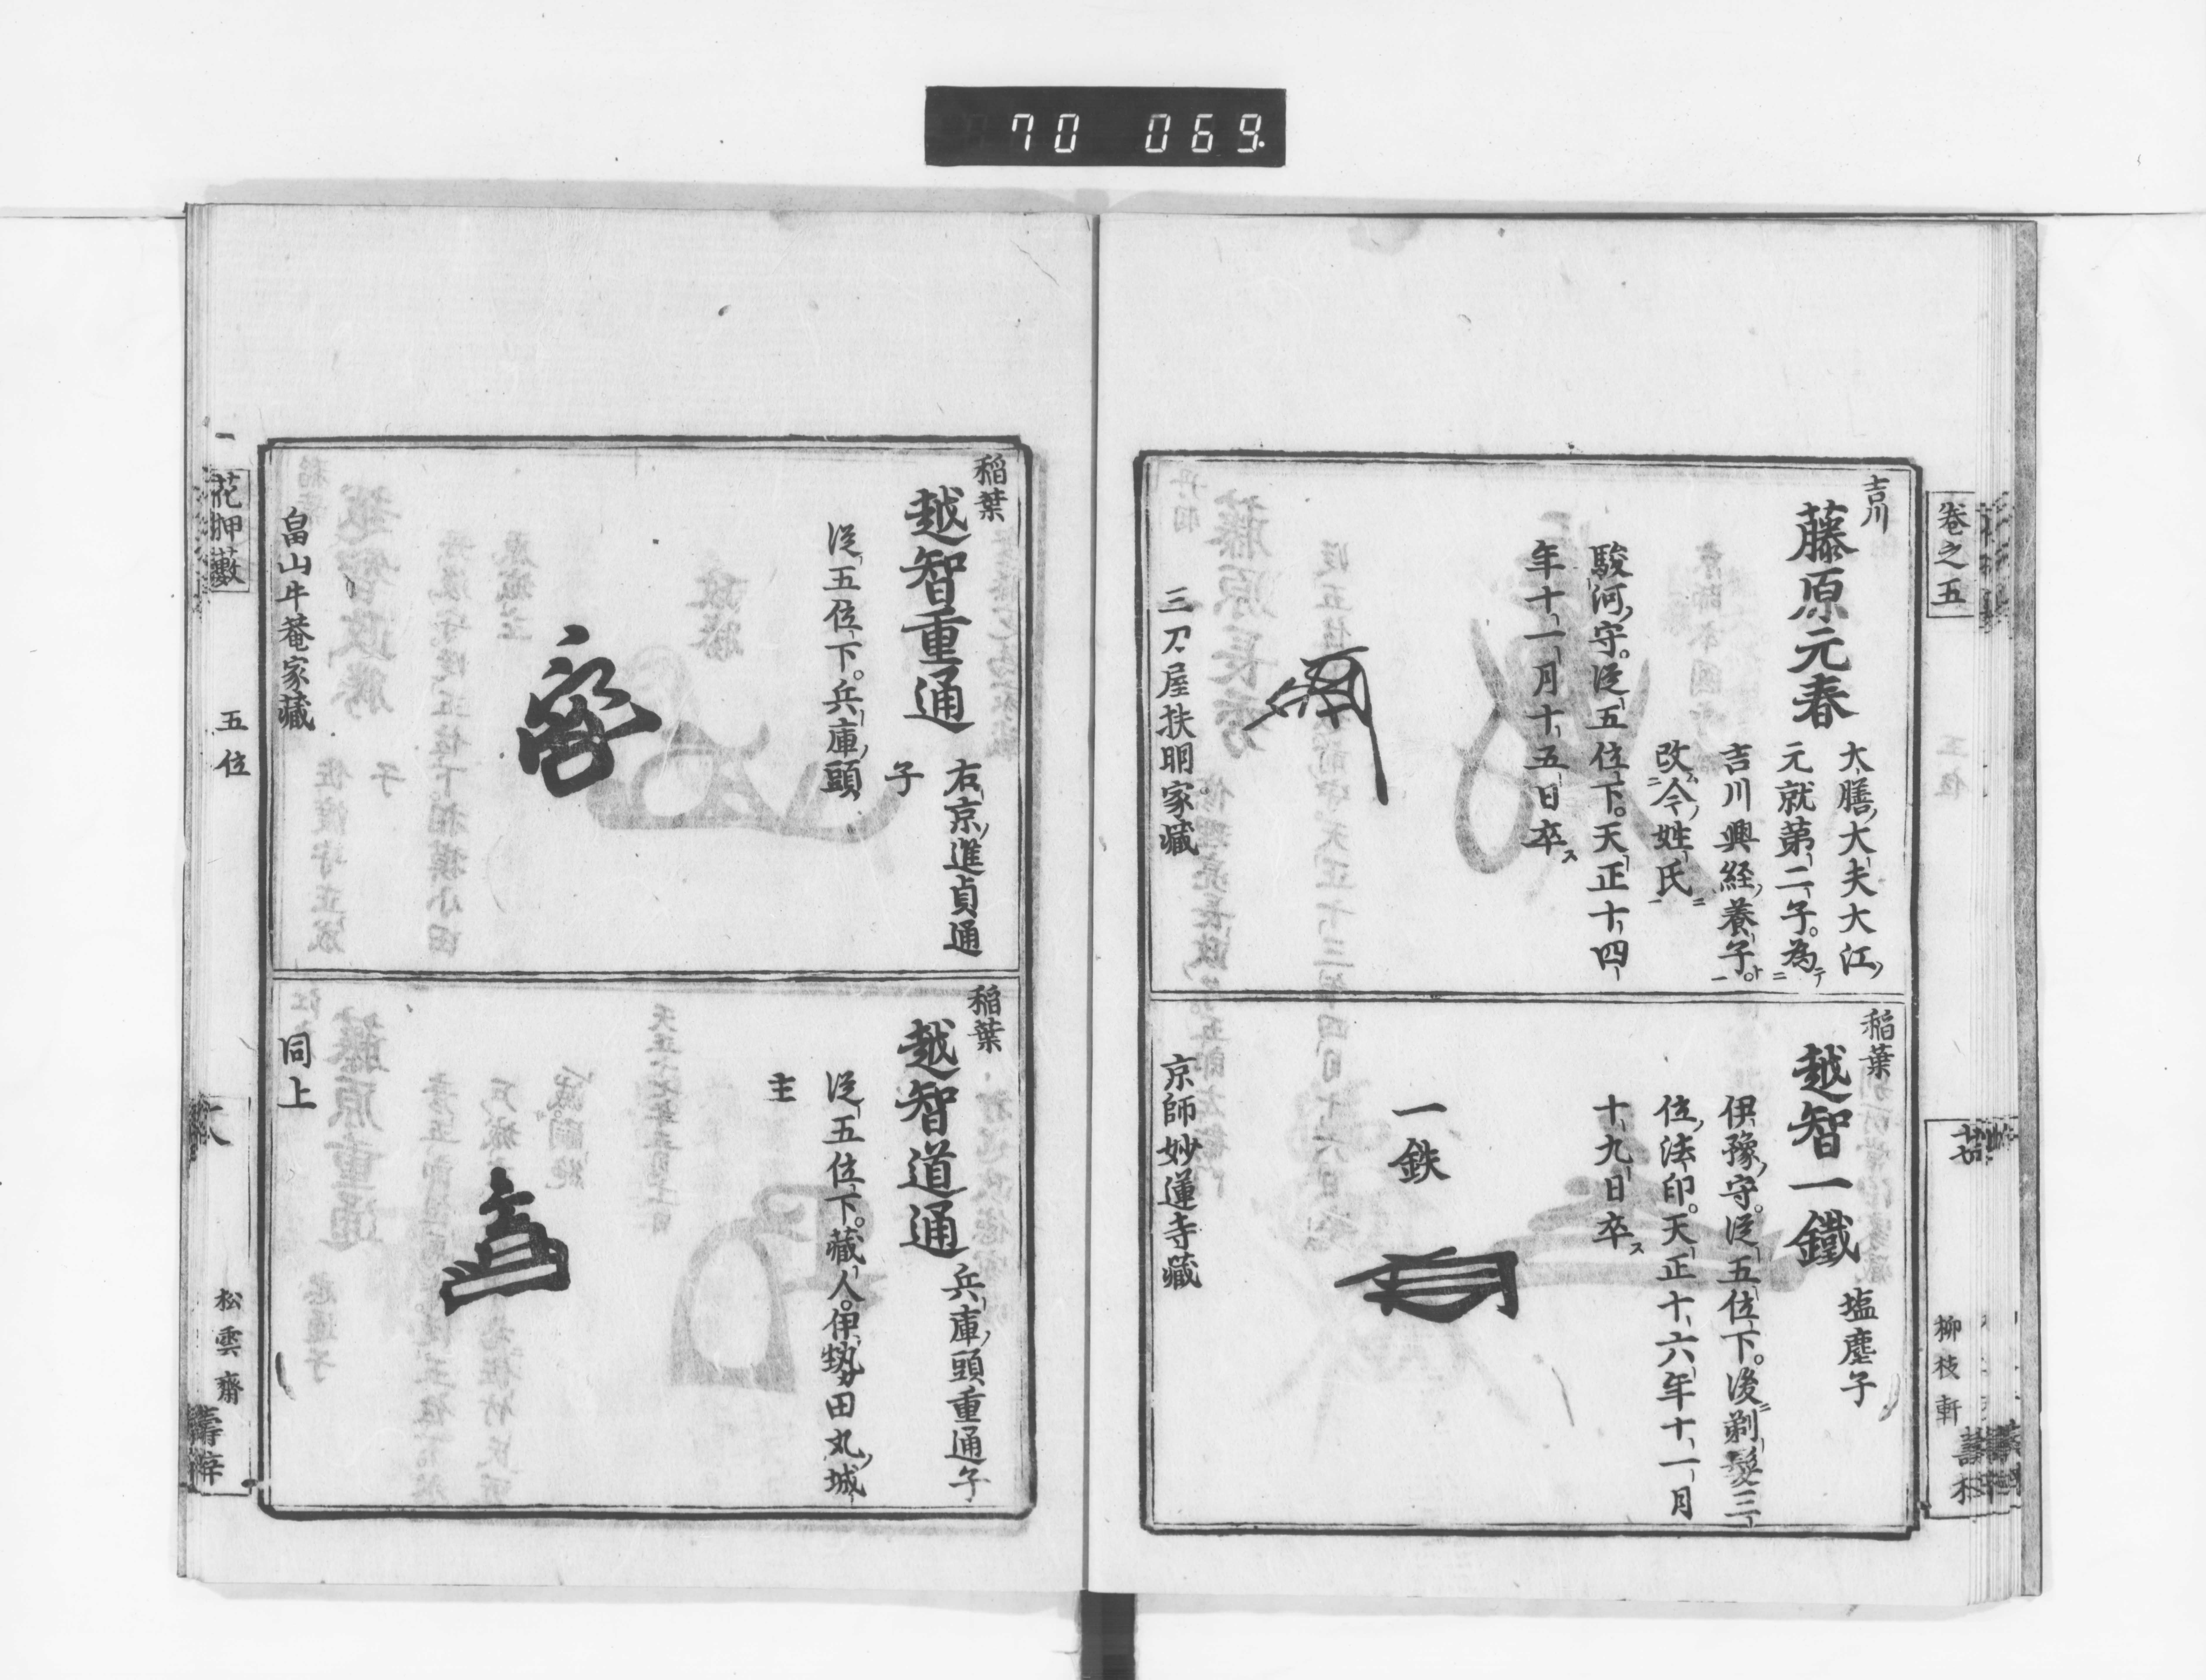 70 069
巻之五
柳枝軒
吉川
藤原元春
大膳大夫大江
元就第二子。為
吉川興経養子。
改今姓氏
駿河守。従五位下。天正十四
年十一月十五日卒
三刀屋扶明家蔵
稲葉
越智一鐵
塩塵子
伊豫守。従五位下。後剃髪三
位法印。天正十六年十一月
十九日卒
一鉄
京師妙蓮寺蔵
稲葉
越智重通
右京進貞通
子
従五位下。兵庫頭
畠山牛菴家蔵
稲葉
越智道通
兵庫頭重通子
従五位下。蔵人。伊勢田丸城
主
同上
花押藪
五位
松雲齋